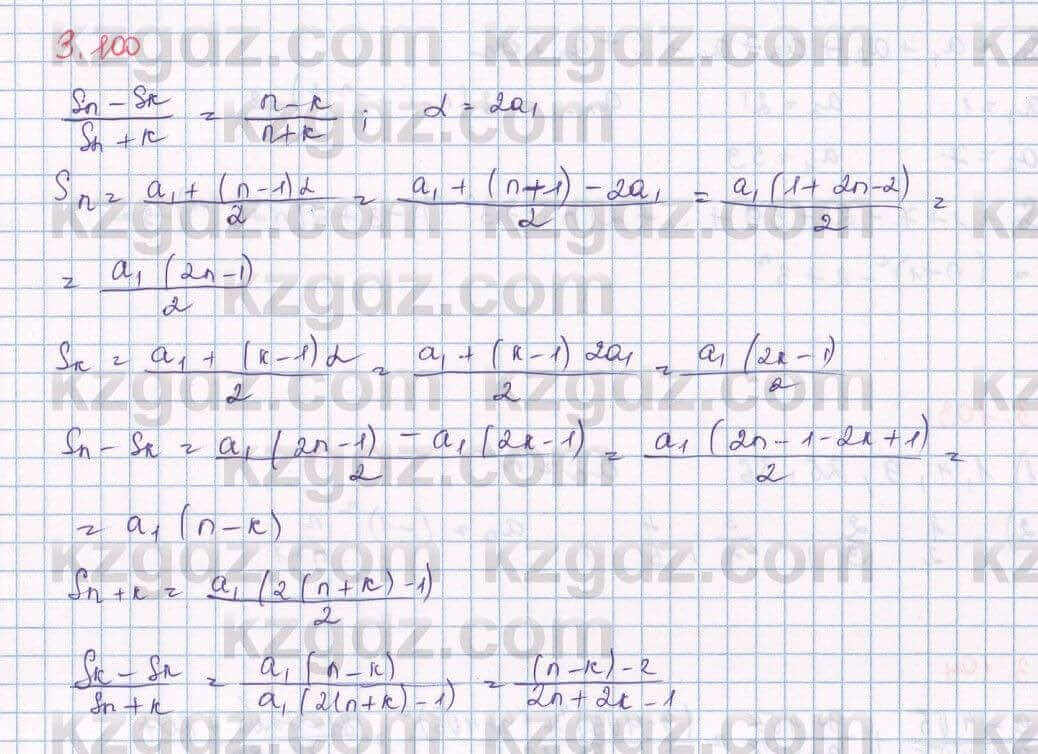 3.100
(Sn - Sk)/(Sn+k) = (n-k)/(n+k) ; d = 2a₁
Sn = (a₁ + (n-1)d)/2 = (a₁ + (n+1) - 2a₁)/2 = (a₁(1 + 2n - 2))/2 =
= (a₁(2n-1))/2
Sk = (a₁ + (k-1)d)/2 = (a₁ + (k-1)2a₁)/2 = (a₁(2k-1))/2
Sn - Sk = (a₁(2n-1) - a₁(2k-1))/2 = (a₁(2n-1-2k+1))/2 =
= a₁(n-k)
Sn+k = (a₁(2(n+k)-1))/2
(Sk - Sk)/(Sn+k) = (a₁(n-k))/(a₁(2(n+k)-1)) = ((n-k)-2)/(2n+2k-1)
kzgdz.com kzgdz.com kz
kzgdz.com
kzgdz.com kzgdz.com kz
kzgdz.com
kzgdz.com kzgdz.com kz
kzgdz.com
kzgdz.com kzgdz.com kz
kzgdz.com
kzgdz.com kzgdz.com kz